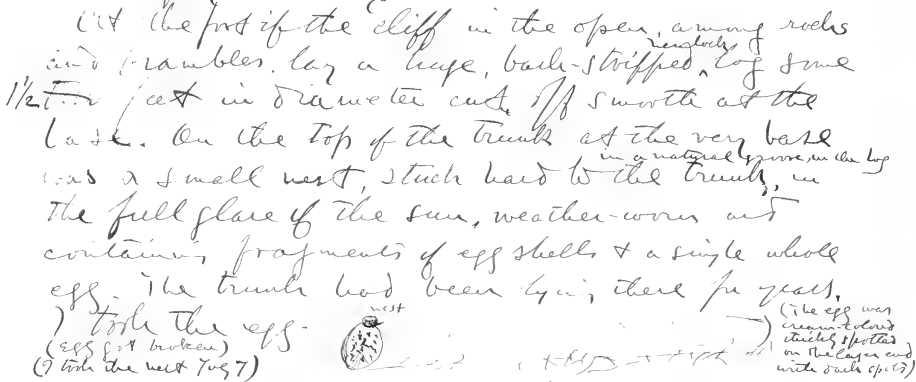 At the foot of the cliff in the open, among rocks
and brambles, lay a huge, bark-stripped, hemlock log some
1½ feet in diameter cut off smooth at the
base. On the top of the trunk at the very base
was a small nest, stuck hard to the trunk, in a natural groove in the log, in
the full glare of the sun, weather-worn and
containing fragments of egg shells & a single whole
egg. The trunk had been lying there for years.
I took the egg.
(egg got broken)
(I took the nest Aug 7)
nest
(The egg was
cream-colored
thickly spotted
on the larger end
with dark spots)